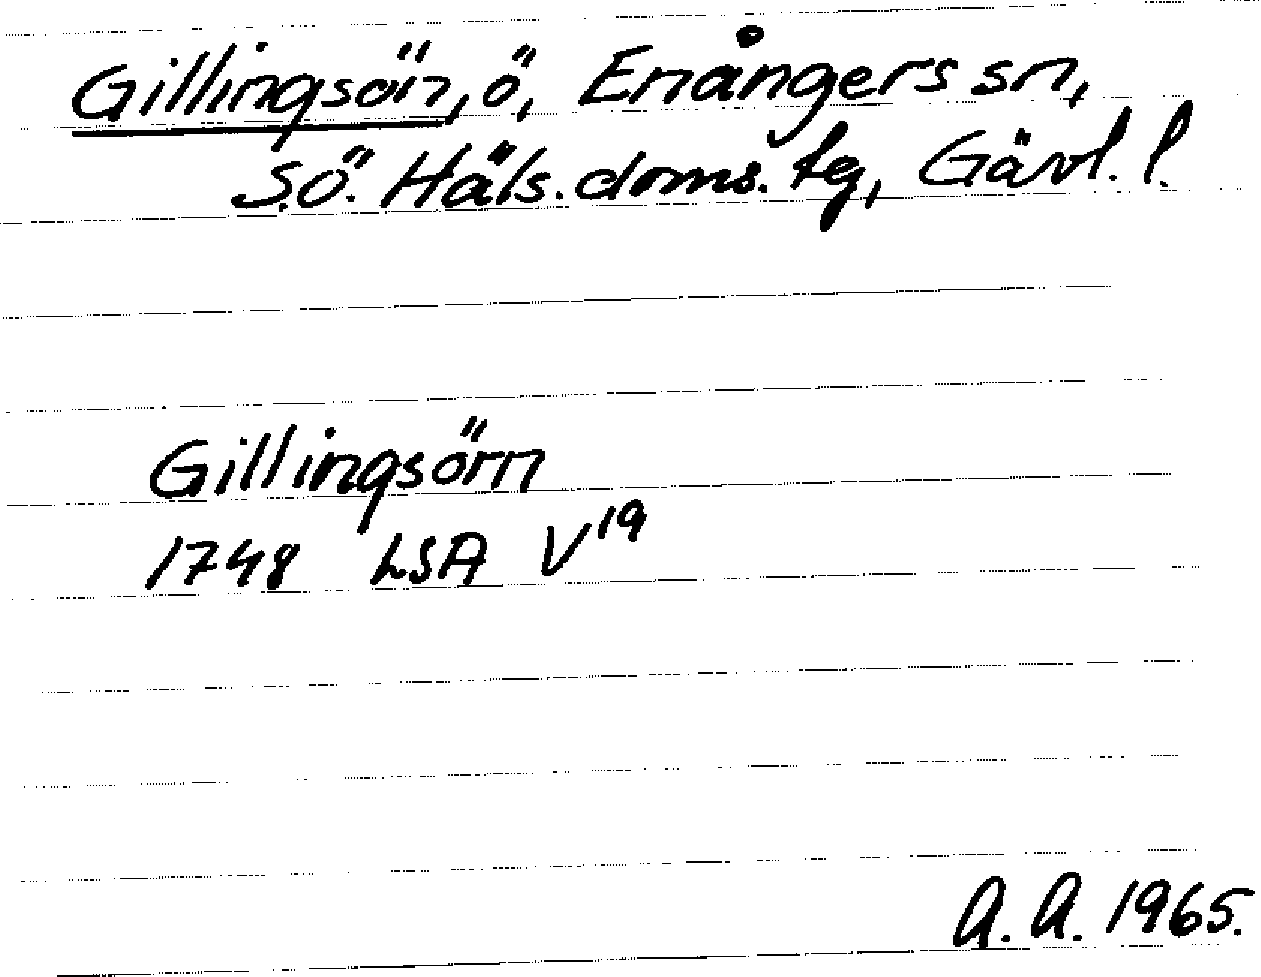 Gillingsön, ö, Enångers sn,
S.Ö. Häls. doms. tg, Gävl. l.
Gillingsörn
1748 LSA V19
A. A. 1965.